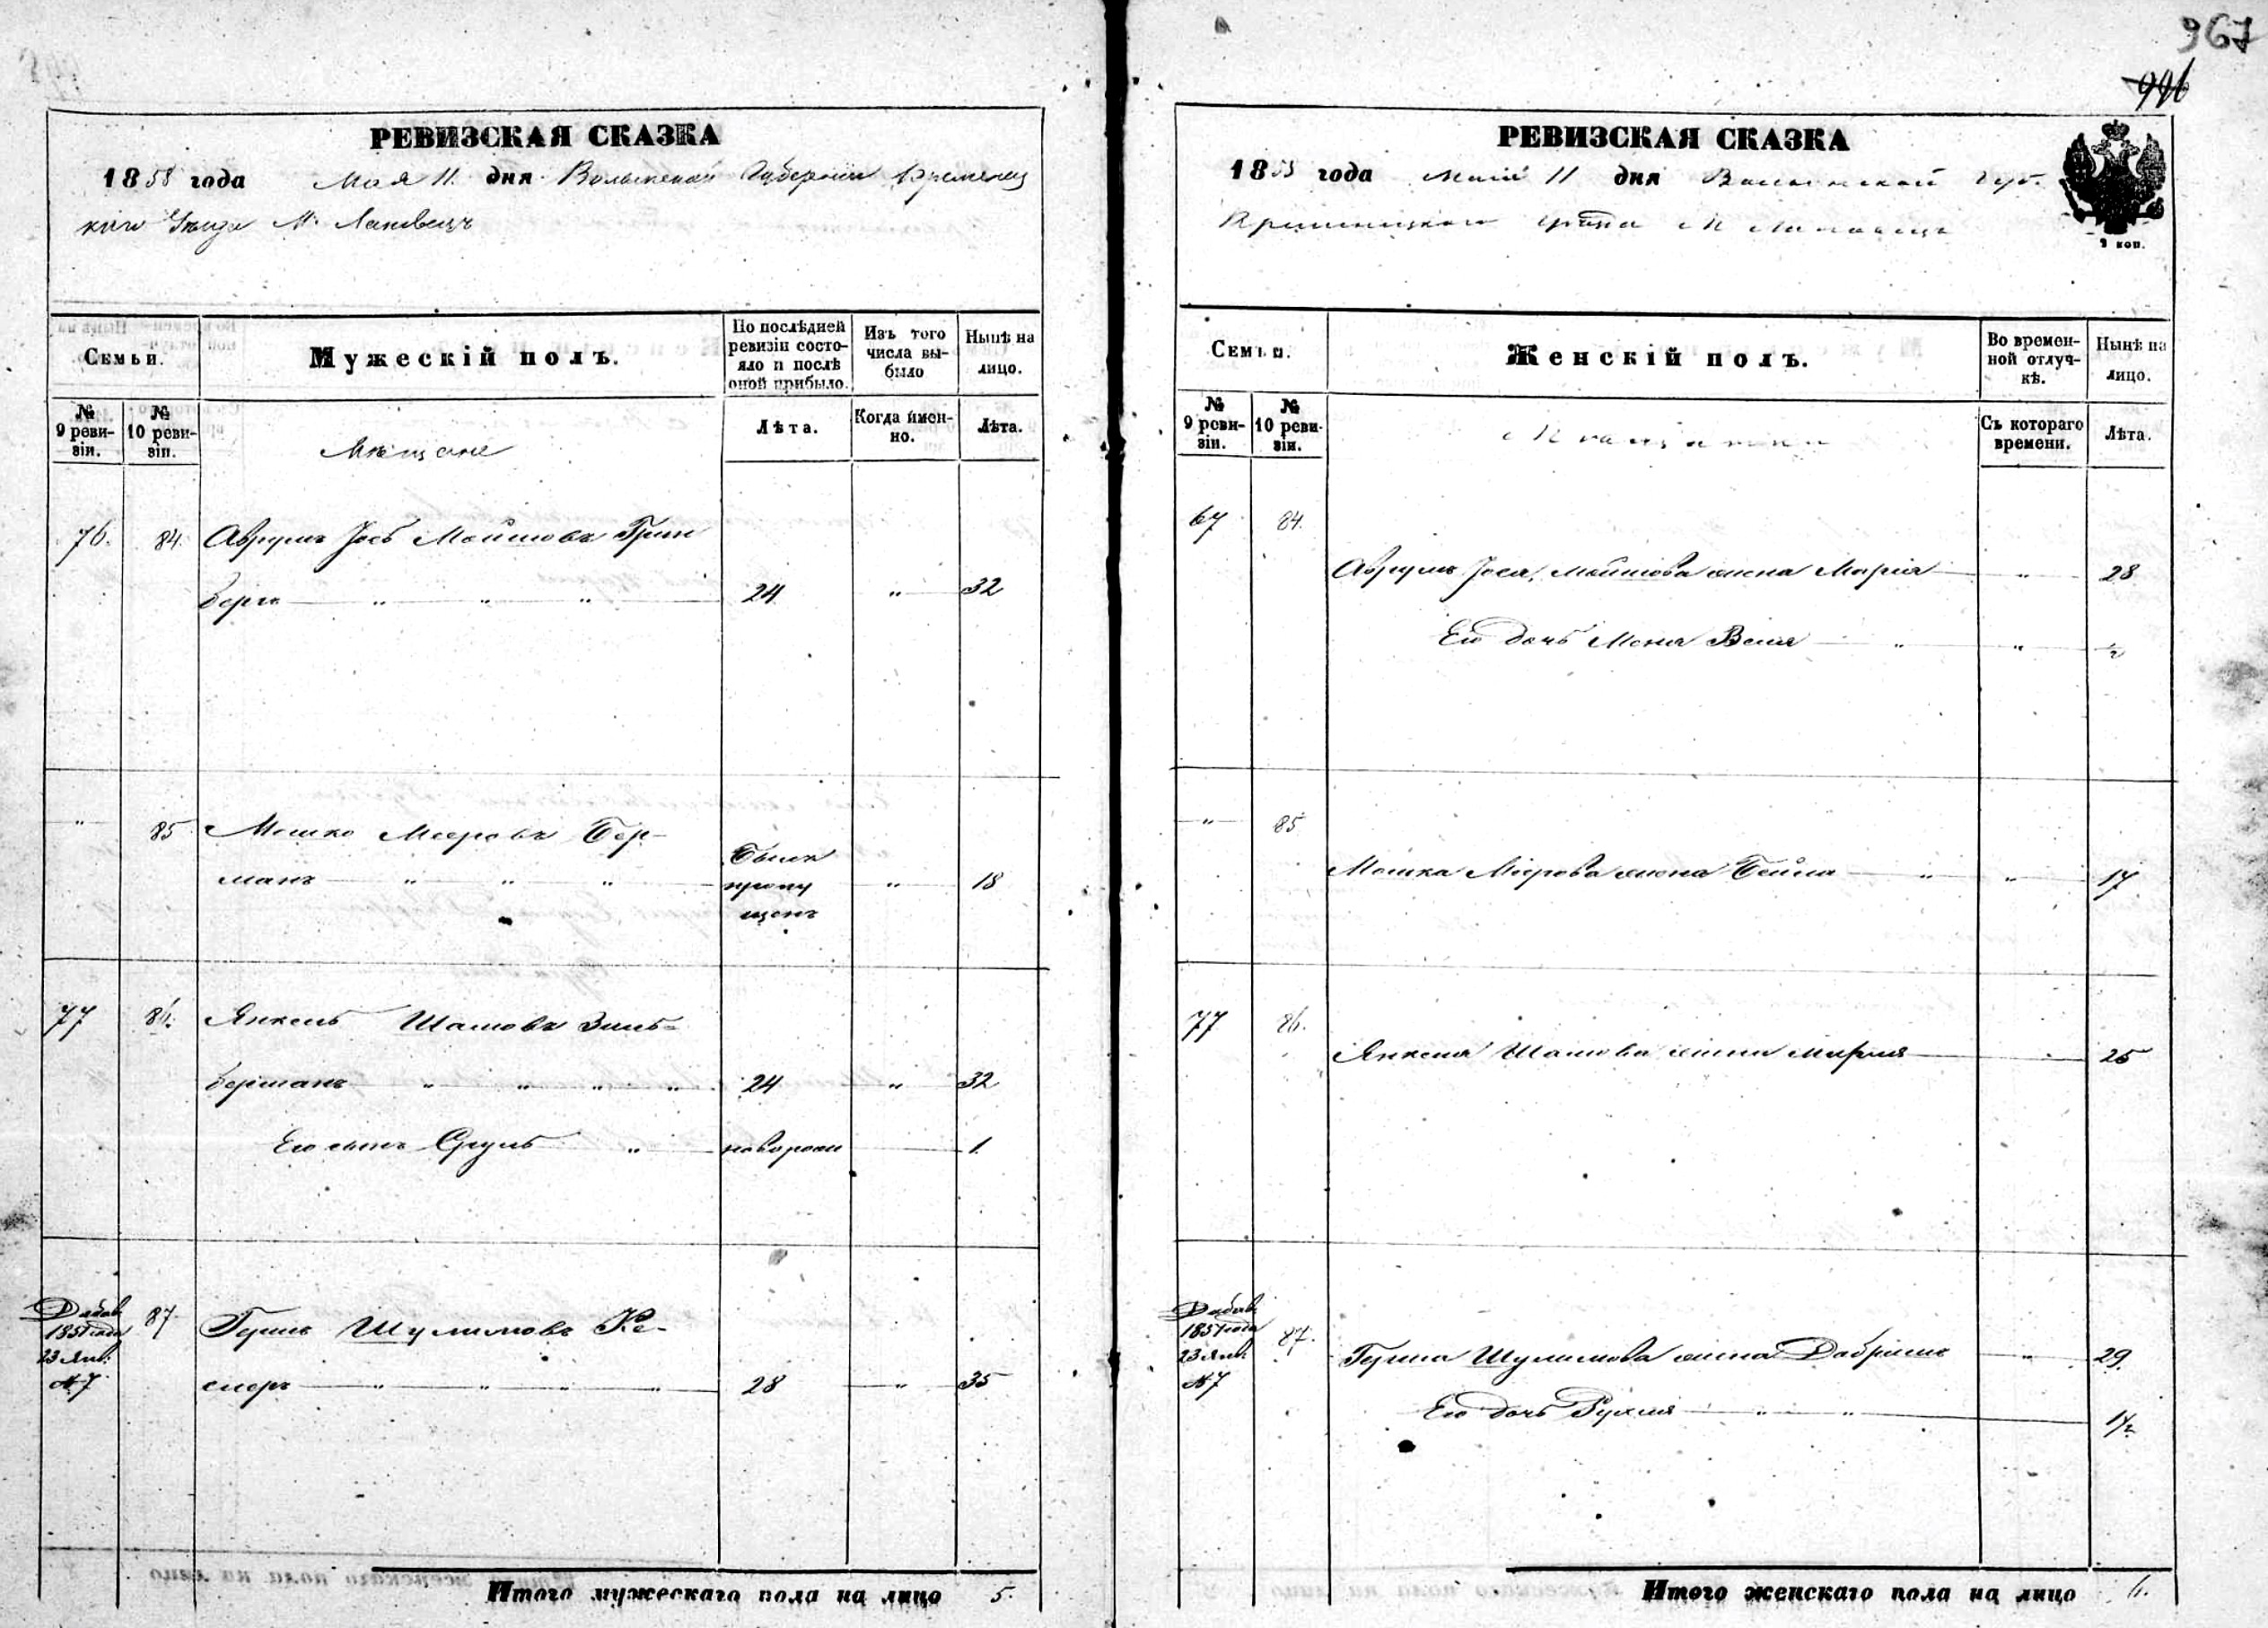 967
996
РЕВИЗСКАЯ СКАЗКА
1858 года Мая 11. дня Волынской Губернии Кременец
каго Уѣзда М. Лановецъ
Семьи.
Мужескій полъ.
По послѣдней ревизіи состояло и послѣ оной прибыло.
Изъ того числа выбыло
Нынѣ на лицо.
№ 9 ревизіи.
№ 10 ревизіи.
Мѣщане
Лѣта.
Когда именно.
Лѣта.
76. 84. Аврумъ Іось Мошковъ Грин
бергъ " " " 24 " 32
" 85 Мошко Мееровъ Бер-
манъ " " " Былъ пропущенъ " 18
77 86. Янкель Шамовъ Зиль-
берманъ " " " " 24 " 32
Его сынъ Сруль " новорож 1
Добав. 1851 года 23 Янв: № 7 87. Гершъ Шулимовъ Ке-
слеръ " " " " 28 " 35
Итого мужескаго пола на лицо 5.
РЕВИЗСКАЯ СКАЗКА
1858 года Маія 11 дня Волынской Губ.
Кременецкаго уѣзда М Лановецъ
2 коп.
Семьи.
Женскій полъ.
Во временной отлучкѣ.
Нынѣ на лицо.
№ 9 ревизіи.
№ 10 ревизіи.
Мѣщанки
Съ котораго времени.
Лѣта.
67 84.
Аврума Іося Мошкова жена Марія " 28
Его дочь Меня Веля " " ½
" 85
Мошка Меерова жена Бейла " " 17
77 86.
Янкеля Шамова жена Мирля 25
Добав. 1851 года 23 Янв. № 7 87.
Герша Шулимова жена Добришъ " 29.
Его дочь Рухля " " 1/2
Итого женскаго пола на лицо 6.